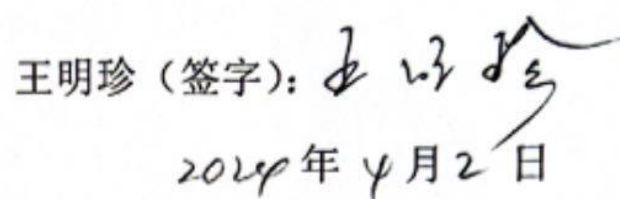 王明珍（签字）：王明珍
2024年4月2日